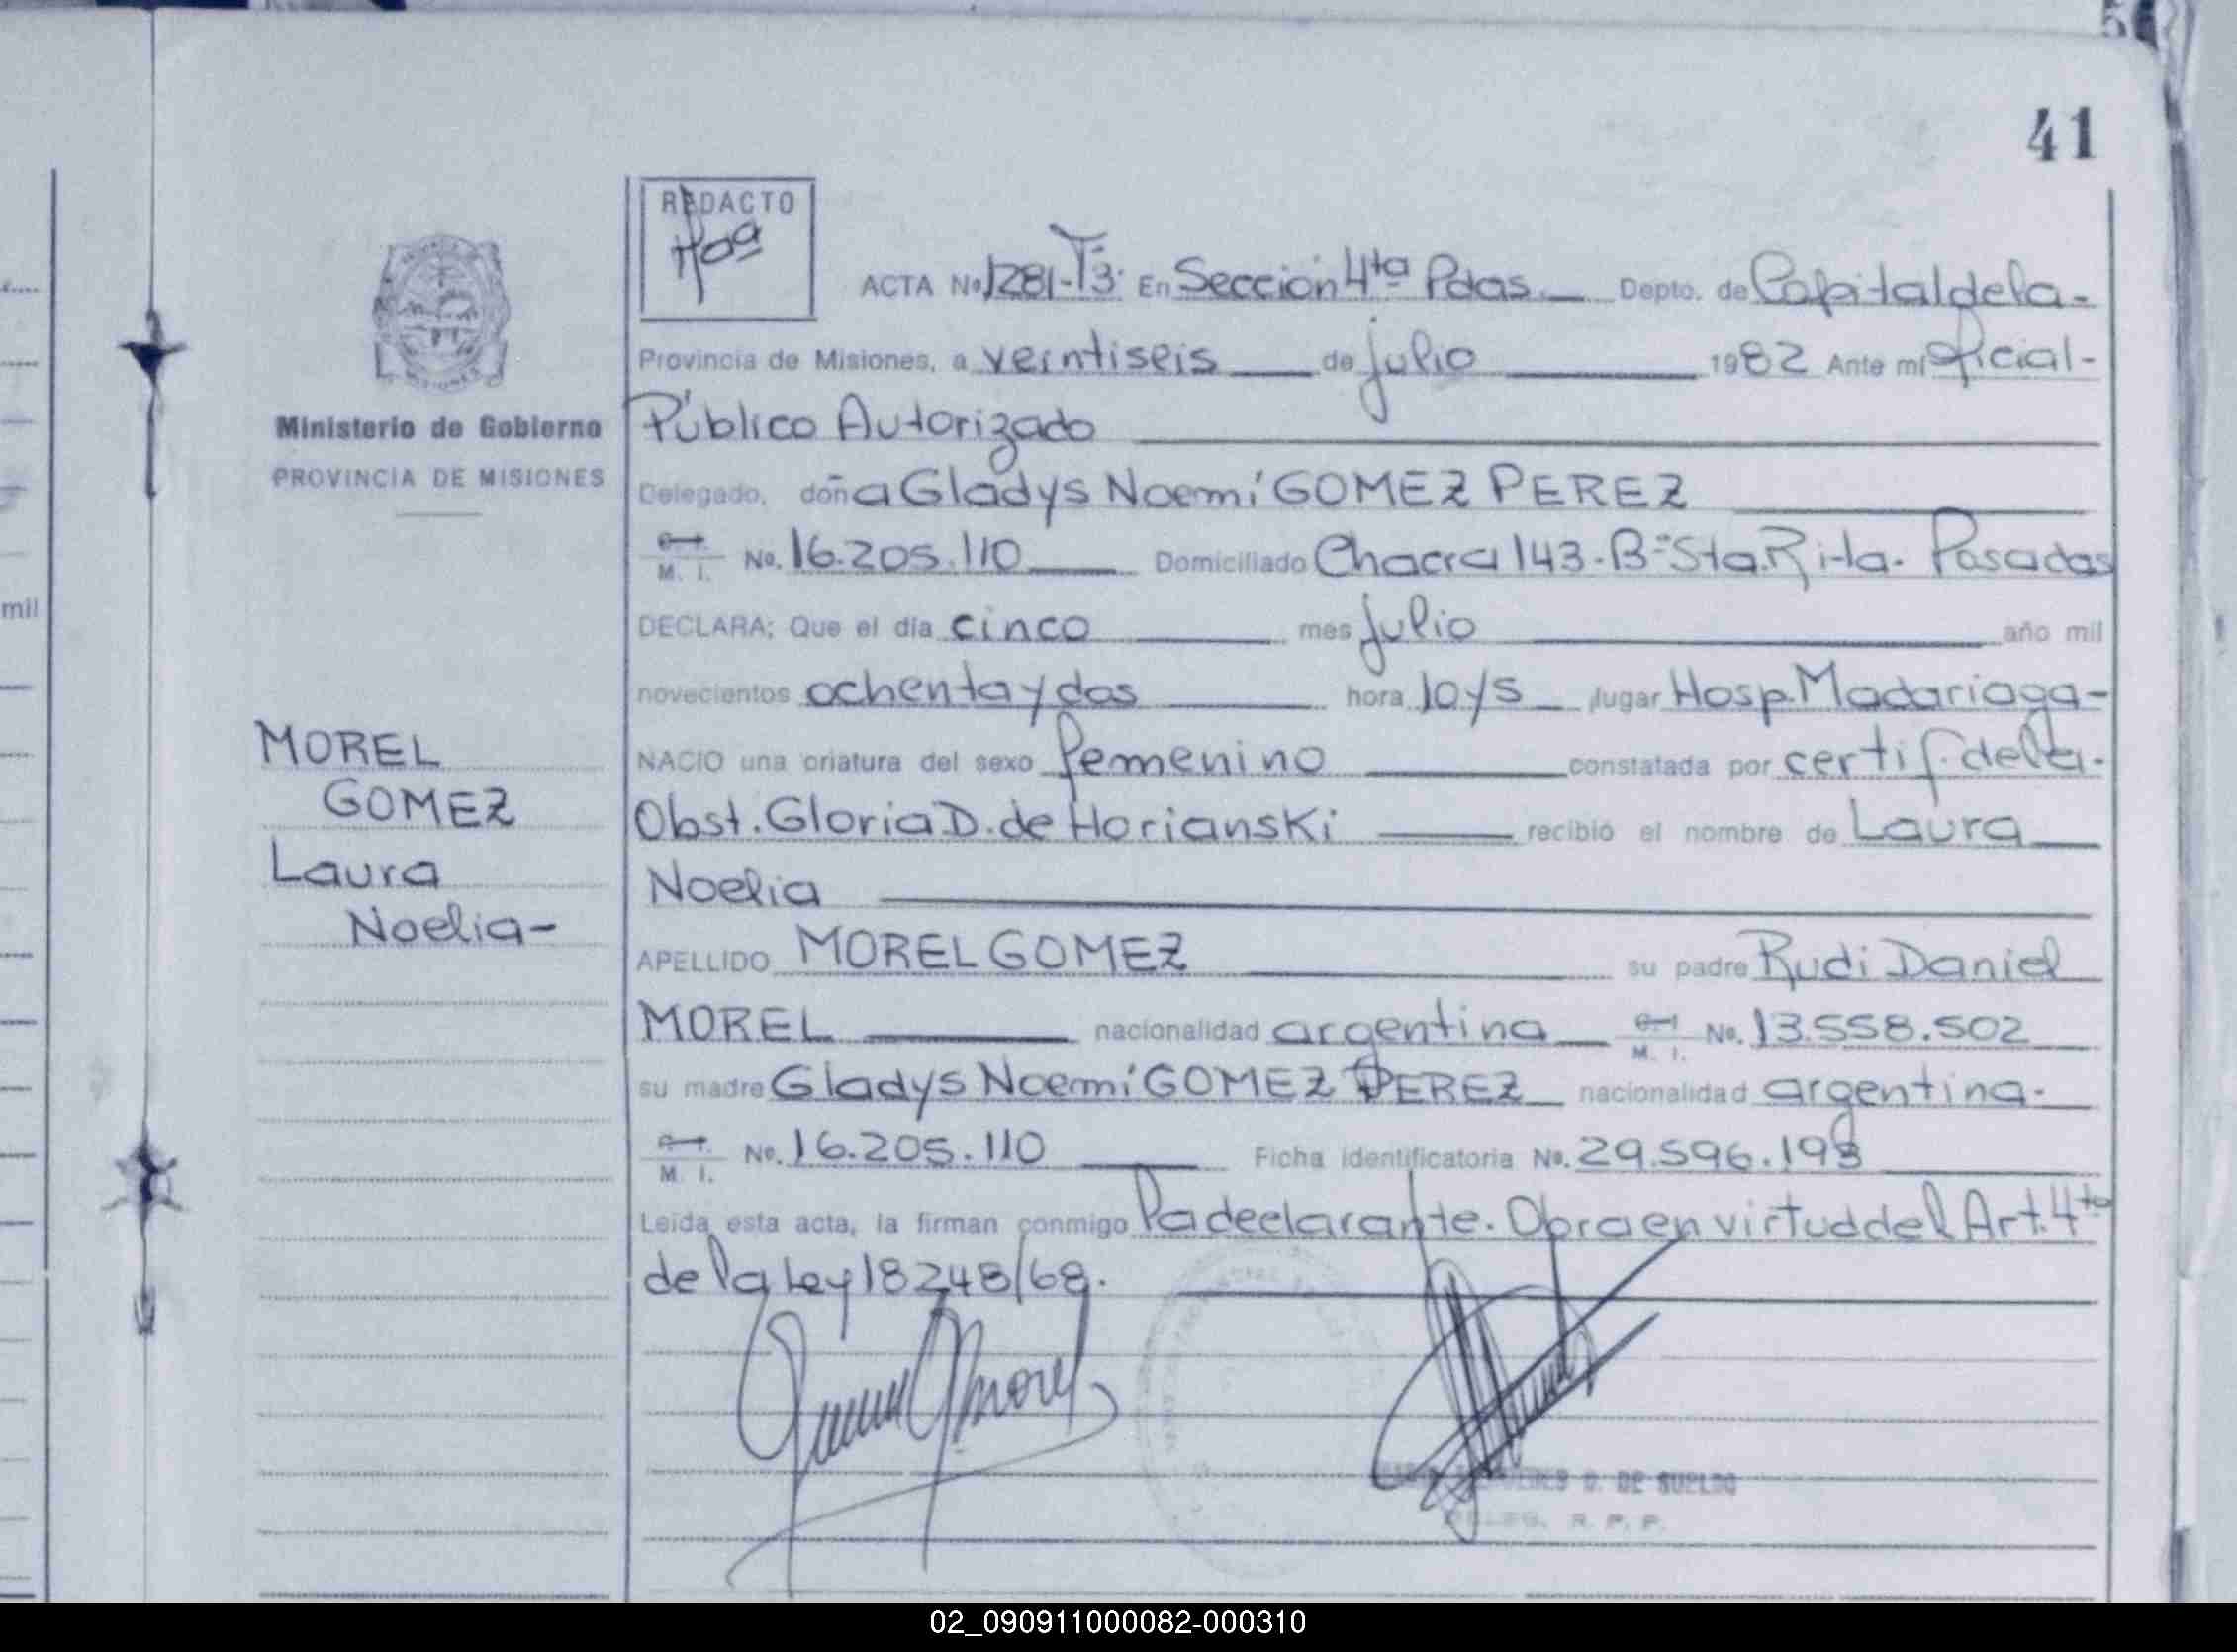 41
REDACTO
ACTA No 1281-T3. En Sección 4ta Pdas. Depto. de Capital de la-
Provincia de Misiones, a veintiseis de julio 1982 Ante mí Oficial-
Público Autorizado
Delegado, doña Gladys Noemí GOMEZ PEREZ
C. I.
M. I. No. 16.205.110 Domiciliado Chacra 143-B° Sta. Rita. Posadas
DECLARA; Que el día cinco mes julio año mil
novecientos ochenta y dos hora 10 y 5 lugar Hosp. Madariaga-
NACIO una criatura del sexo femenino constatada por certif. de la.
Obst. Gloria D. de Horianski recibió el nombre de Laura
Noelia
APELLIDO MOREL GOMEZ su padre Rudi Daniel
MOREL nacionalidad argentina C. I. M. I. No. 13.558.502
su madre Gladys Noemí GOMEZ PEREZ nacionalidad argentina.
C. I.
M. I. No. 16.205.110 Ficha identificatoria No. 29.596.198
Leída esta acta, la firman conmigo la declarante. Obra en virtud del Art. 4to
de la Ley 18248/69.
D. DE SUELDO
DELEG. R. P. P.
Ministerio de Gobierno
PROVINCIA DE MISIONES
MOREL
GOMEZ
Laura
Noelia-
mil
02_090911000082-000310